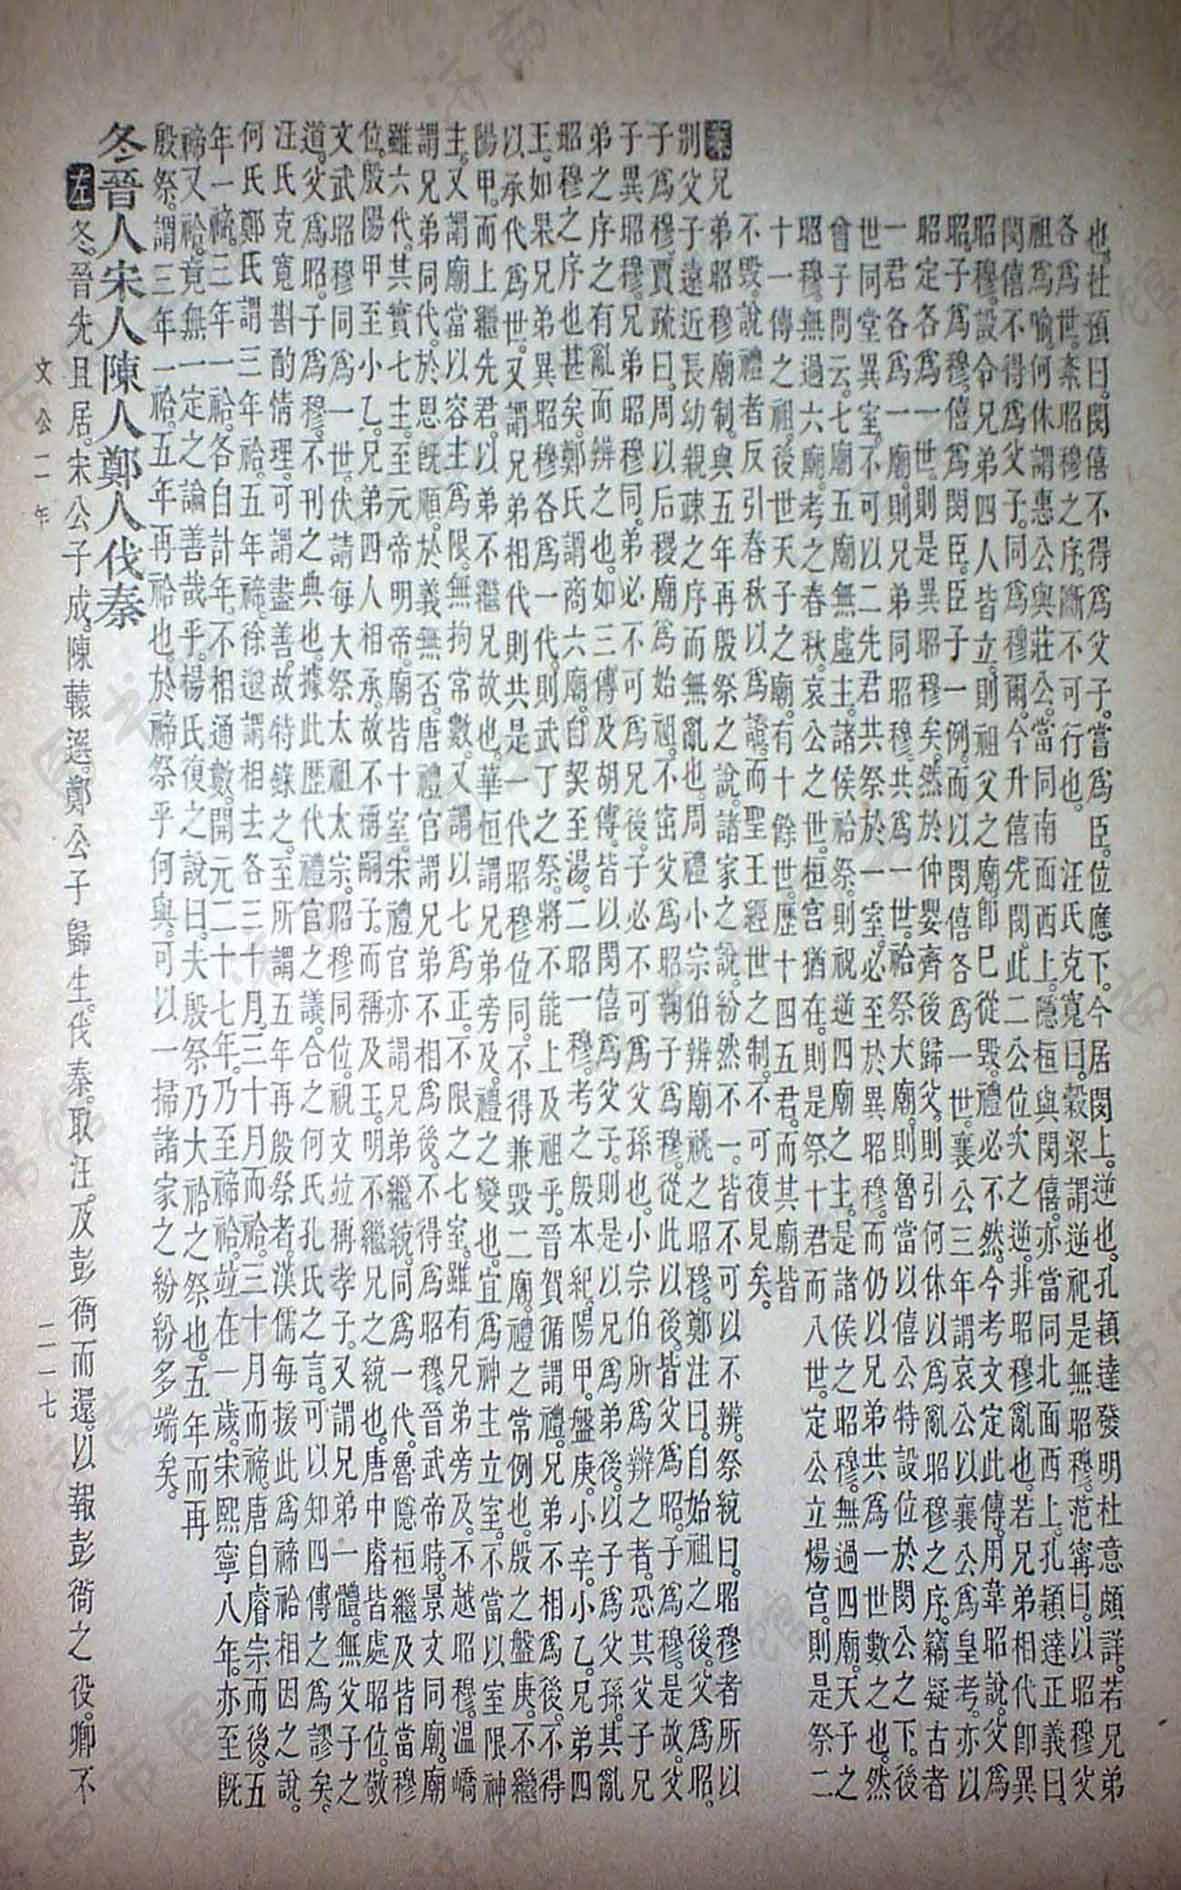 也。杜預曰。閔僖不得爲父子。嘗爲臣。位應下。今居閔上。逆也。孔穎達發明杜意頗詳。若兄弟
各爲世。紊昭穆之序。斷不可行也。 汪氏克寬曰。穀梁謂逆祀是無昭穆。范甯曰。以昭穆父
祖爲喻。何休謂惠公與莊公。當同南面西上。隱桓與閔僖。亦當同北面西上。孔穎達正義曰。
閔僖不得爲父子。同爲穆爾。今升僖先閔。此二公位次之逆。非昭穆亂也。若兄弟相代。卽異
昭穆。設令兄弟四人皆立。則祖父之廟卽已從毀。禮必不然。今考文定此傳。用韋昭說。父爲
昭。子爲穆。僖爲閔臣。臣子一例。而以閔僖各爲一世。襄公三年謂哀公以襄公爲皇考。亦以
昭定各爲一世。則是異昭穆矣。然於仲嬰齊後歸父。則引何休以爲亂昭穆之序。竊疑古者
一君各爲一廟。則兄弟同昭穆。共爲一世。祫祭大廟。則魯當以僖公特設位於閔公之下。後
世同堂異室。不可以二先君共祭於一室。必至於異昭穆。而仍以兄弟共爲一世數之也。然
曾子問云。七廟五廟無虛主。諸侯祫祭。則祝逆四廟之主。是諸侯之昭穆。無過四廟。天子之
昭穆。無過六廟。考之春秋。哀公之世。桓宮猶在。則是祭十君而八世。定公立煬宮。則是祭二
十一傳之祖。後世天子之廟。有十餘世。歷十四五君。而其廟皆
不毀。說禮者反引春秋以爲證。而聖王經世之制。不可復見矣。
案 兄弟昭穆廟制。與五年再殷祭之說。諸家之說。紛然不一。皆不可以不辨。祭統曰。昭穆者所以
別父子遠近長幼親疎之序而無亂也。周禮小宗伯辨廟祧之昭穆。鄭注曰。自始祖之後。父爲昭。
子爲穆。賈疏曰。周以后稷廟爲始祖。不窋父爲昭。鞠子爲穆。從此以後。皆父爲昭。子爲穆。是故父
子異昭穆。兄弟昭穆同。弟必不可爲兄後。子必不可爲父孫也。小宗伯所爲辨之者。恐其父子兄
弟之序之有亂而辨之也。如三傳及胡傳。皆以閔僖爲父子。則是以兄爲弟後。以子爲父孫。其亂
昭穆之序也甚矣。鄭氏謂商六廟。自契至湯。二昭一穆。考之殷本紀。陽甲。盤庚。小辛。小乙。兄弟四
王。如果兄弟異昭穆。各爲一代。則武丁之祭。將不能上及祖乎。晉賀循謂。禮。兄弟不相爲後。不得
以承代爲世。又謂兄弟相代則共是一代。昭穆位同。不得兼毀二廟。禮之常例也。殷之盤庚。不繼
陽甲。而上繼先君。以弟不繼兄故也。華恒謂兄弟旁及。禮之變也。宜爲神主立室。不當以室限神
主。又謂廟當以容主爲限。無拘常數。又謂以七爲正。不限之七室。雖有兄弟旁及。不越昭穆。溫嶠
謂兄弟同代。於恩旣順。於義無否。唐禮官謂兄弟不相爲後。不得爲昭穆。晉武帝時。景文同廟。廟
雖六代。其實七主。至元帝明帝。廟皆十室。宋禮官亦謂兄弟繼統。同爲一代。魯隱桓繼及。皆當穆
位。殷陽甲至小乙。兄弟四人相承。故不稱嗣子。而稱及王。明不繼兄之統也。唐中睿皆處昭位。敬
文武昭穆同爲一世。伏請每大祭。太祖太宗。昭穆同位。祝文竝稱孝子。又謂兄弟一體。無父子之
道。父爲昭。子爲穆。不刊之典也。據此歷代禮官之議。合之何氏孔氏之言。可以知四傳之爲謬矣。
汪氏克寬斟酌情理。可謂盡善。故特錄之。至所謂五年再殷祭者。漢儒每援此爲禘祫相因之說。
何氏鄭氏謂三年祫。五年禘。徐邈謂相去各三十月。三十月而祫。三十月而禘。唐自睿宗而後。五
年一禘。三年一祫。各自計年。不相通數。開元二十七年。乃至禘祫竝在一歲。宋熙寧八年。亦至旣
禘又祫。竟無一定之論。善哉乎。楊氏復之說曰。夫殷祭乃大祫之祭也。五年而再
殷祭。謂三年一祫。五年再祫也。於禘祭乎何與。可以一掃諸家之紛紛多端矣。
冬晉人宋人陳人鄭人伐秦
左 冬。晉先且居。宋公子成。陳轅選。鄭公子歸生。伐秦。取汪。及彭衙而還。以報彭衙之役。卿不
文公二年
二一七